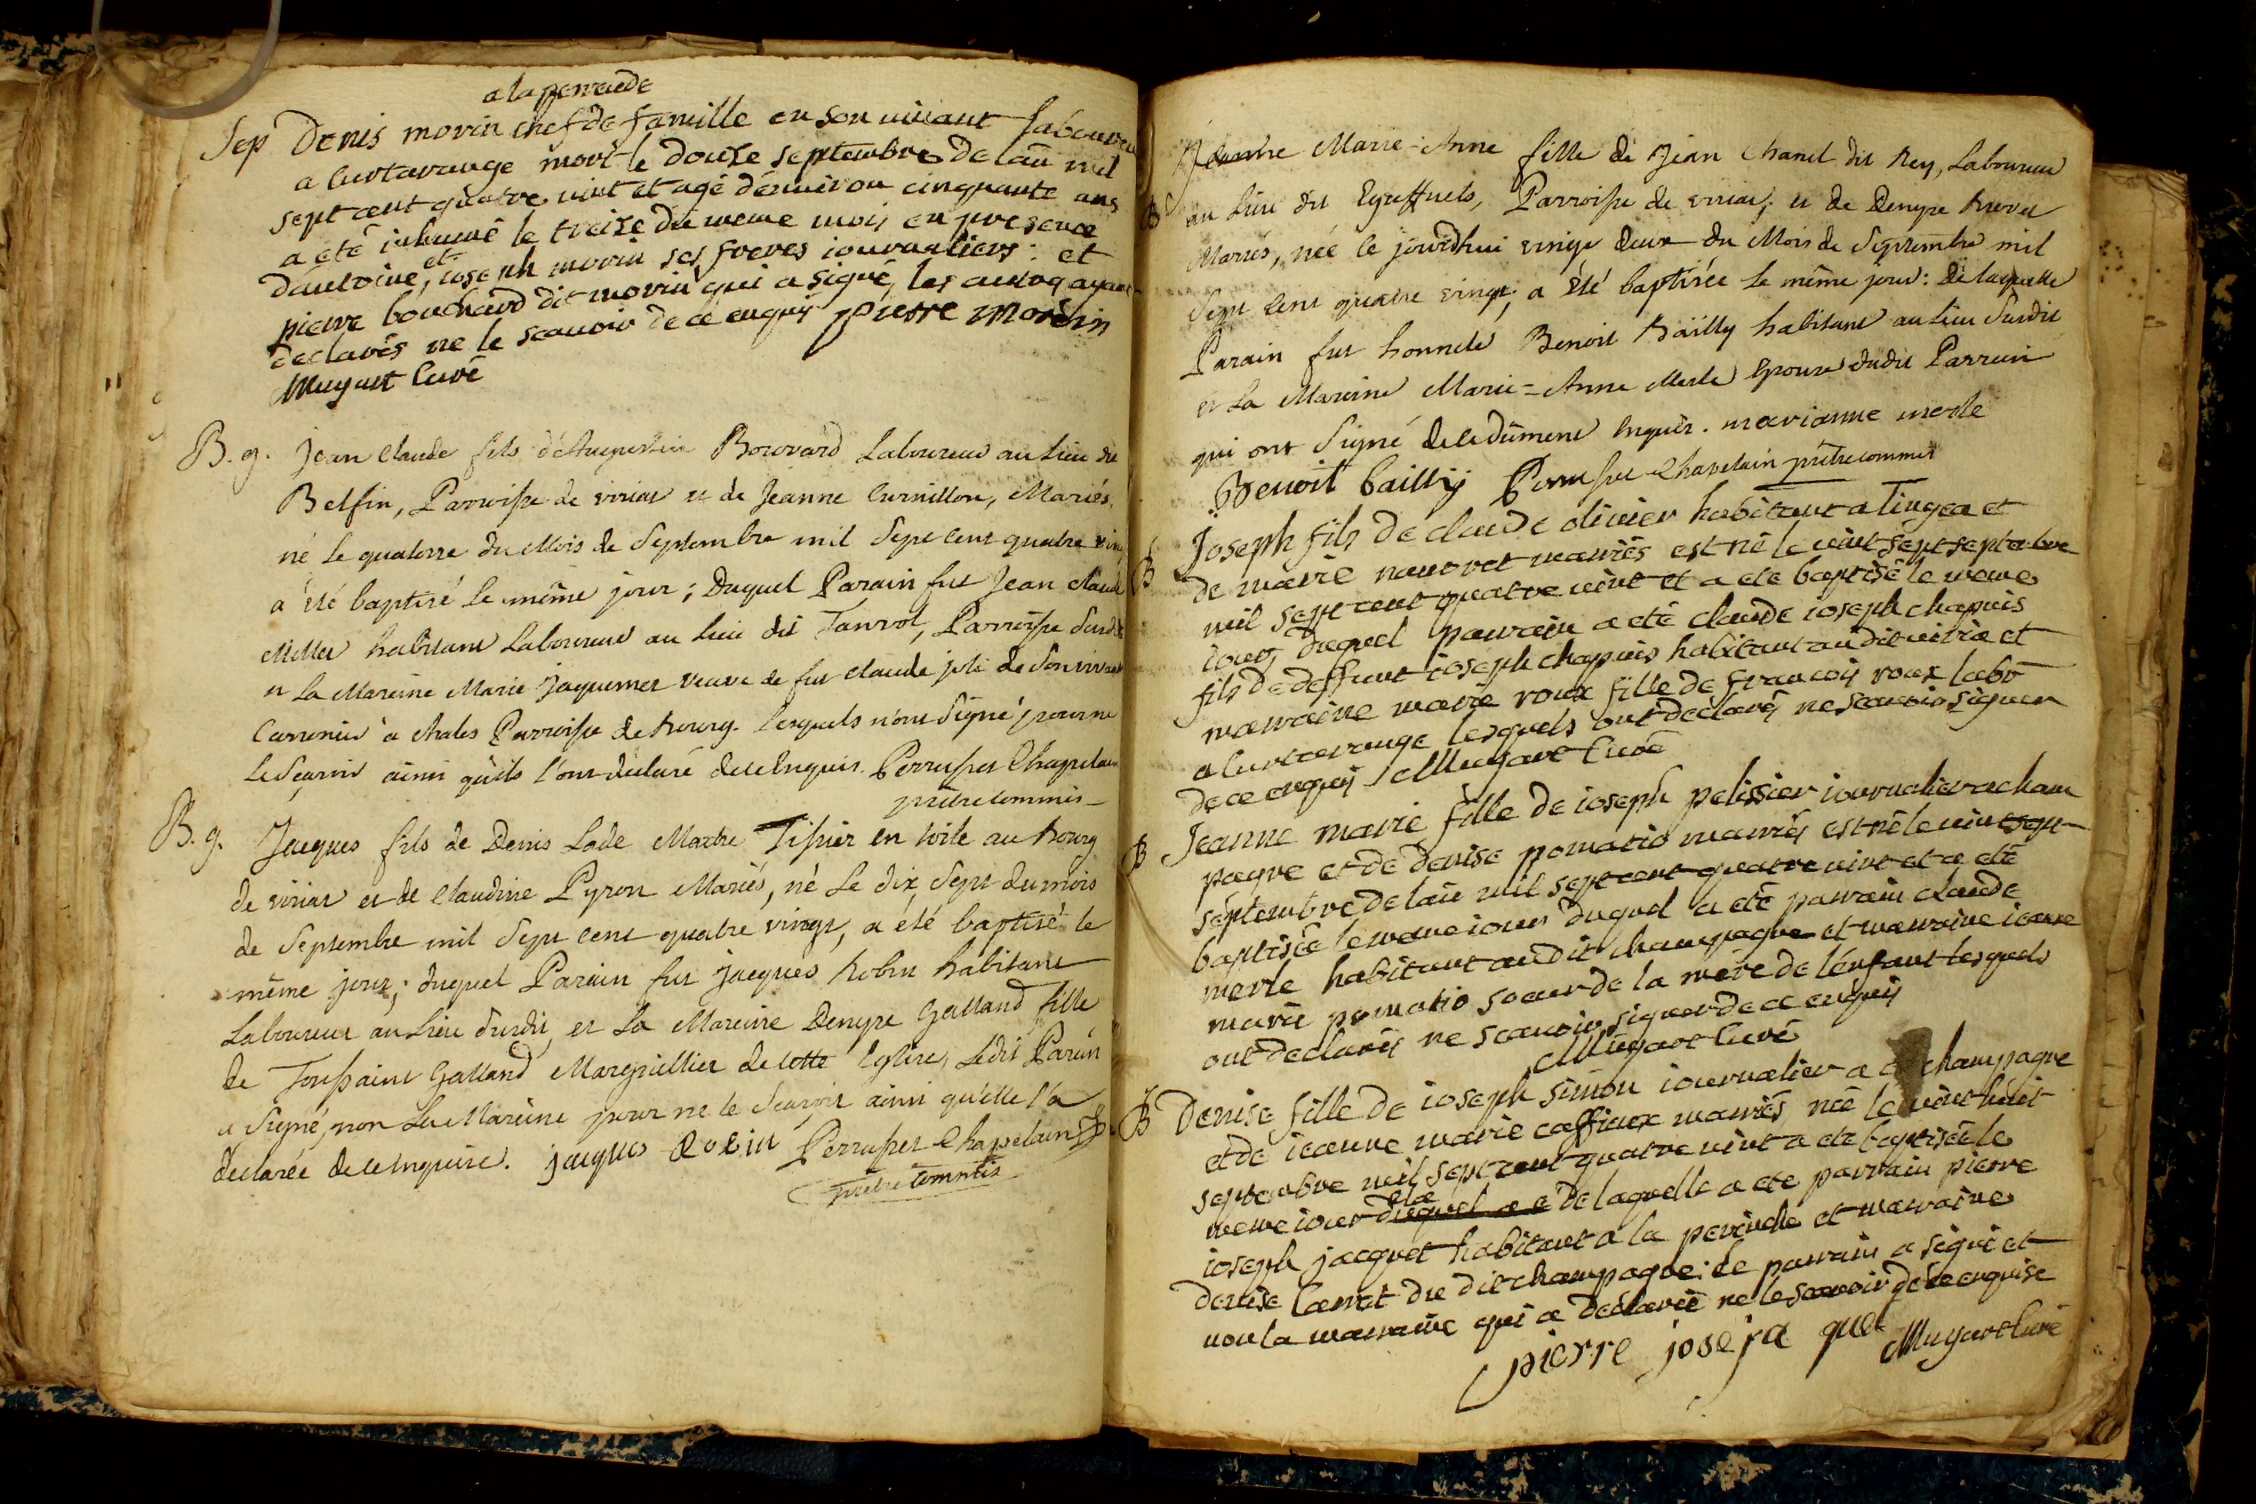 a la perraude
Sep Denis morin chef de famille en son vivant laboureur
a curtarange mort le douse septembre de lan mil
sept cent quatre vint et agé d'environ cinquante ans
a eté inhumé le treise du meme mois en presence
d'antoine, et ioseph morin ses freres iournaliers: et
pierre bouchard dit morin qui a signé, les autres ayant
declarés ne le scauoir de ce enquis pierre Morin
Muyart Curé
B. g. Jean Claude fils d'Augustin Bouvard Laboureur au Lieu du
Belfin, Parroisse de viriat et de Jeanne Curnillon, Mariés,
né le quatorze du Mois de Septembre mil Sept cent quatre vin
a été baptisé Le même jour; Duquel Parain fut Jean Claude
Millet habitant Laboureur au Lieu dit Tanvol, Parroisse Susdit
et La Mareine Marie Jaquemet veuve de fut claude joli de Son vivant
à Chales Parroisse de Bourg. Lesquels n'ont Signé pour ne
Le Scavoir ainsi quils l'ont déclaré de ce Enquis. Perrusset Chapelain
prêtre commis
B. g. Jacques fils de Denis Lade Maitre Tissier en toile au Bourg
de viriat et de Claudine Pyron Mariés, né Le dix Sept du mois
de Septembre mil Sept cent quatre vingt, a été baptisé le
même jour; duquel Parain fut Jacques Robin habitant
Laboureur au Lieu Susdit, et La Mareine Denyse Galland fille
de Toussaint Galland Marguillier de cette Eglise, Ledit Parain
a Signé, non La Mareine pour ne le Scavoir ainsi qu'elle l'a
déclarée de ce enquise. jaques Robin Perrusset Chapelain
prêtre commis
Jeanne Marie-Anne fille de Jean Chanel dit Rey, Laboureur
B au Lieu dit Egreffuels, Parroisse de viriat; et de Denyse
Mariés, née le jourd'hui vingt deux du Mois de Septembre mil
Sept Cent quatre vingt; a été baptisée le même jour: de laquelle
Parain fut honnete Benoit Bailly habitant au Lieu Susdit
et La Mareine Marie=Anne Merle Epouse dudit Parrain
qui ont Signé de ce dûment Enquis. marianne merle
Benoit bailly Perrusset Chapelain prêtre commis
B Joseph fils de claude oliuier habitant a Tingea et
de marie mariés est né le vint sept septabre
mil sept cent quatre vint et a ete baptisé le meme
iour, duquel parrain a eté claude ioseph chapuis
fils de deffunt ioseph chapuis habitant audit viria et
marraine marie roux fille de francois roux labo
a curtarange lesquels ont declarés ne scauoir signer
de ce enquis Muyart Curé
B Jeanne marie fille de ioseph pelissier iournalier a cham
pagne et de denise pomatio mariés est né le vint sept
septembre de lan mil sept cent quatre vint et a eté
baptisée le meme iour duquel a eté parrain claude
merle habitant audit champagne et marraine ieane
marie pomatio soeur de la mere de l'enfant lesquels
ont declarés ne scauoir signer de ce enquis
Muyart Curé
B Denise fille de ioseph simon iournalier a champagne
et de ieanne marie caffiaux mariés, née le vint huit
septembre mil sept cent quatre vint a eté baptisée le
meme iour de laquelle a eté parrain pierre
ioseph jacquet habitant a la perinche et marraine
denise du dit champagne: le parrain a signé et
non la marraine qui a declarée ne le scavoir de ce enquise
pierre joseja que Muyart Curé